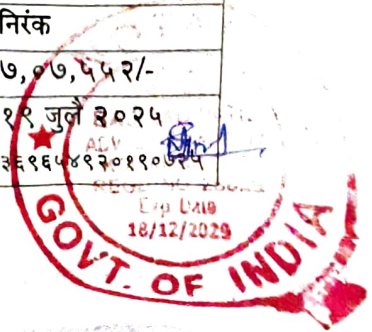 निरंक
७,०७,५५२/-
१९ जुलै २०२५
३६९६५४९२०१९०७२५
Exp Date
18/12/2029
GOVT. OF INDIA